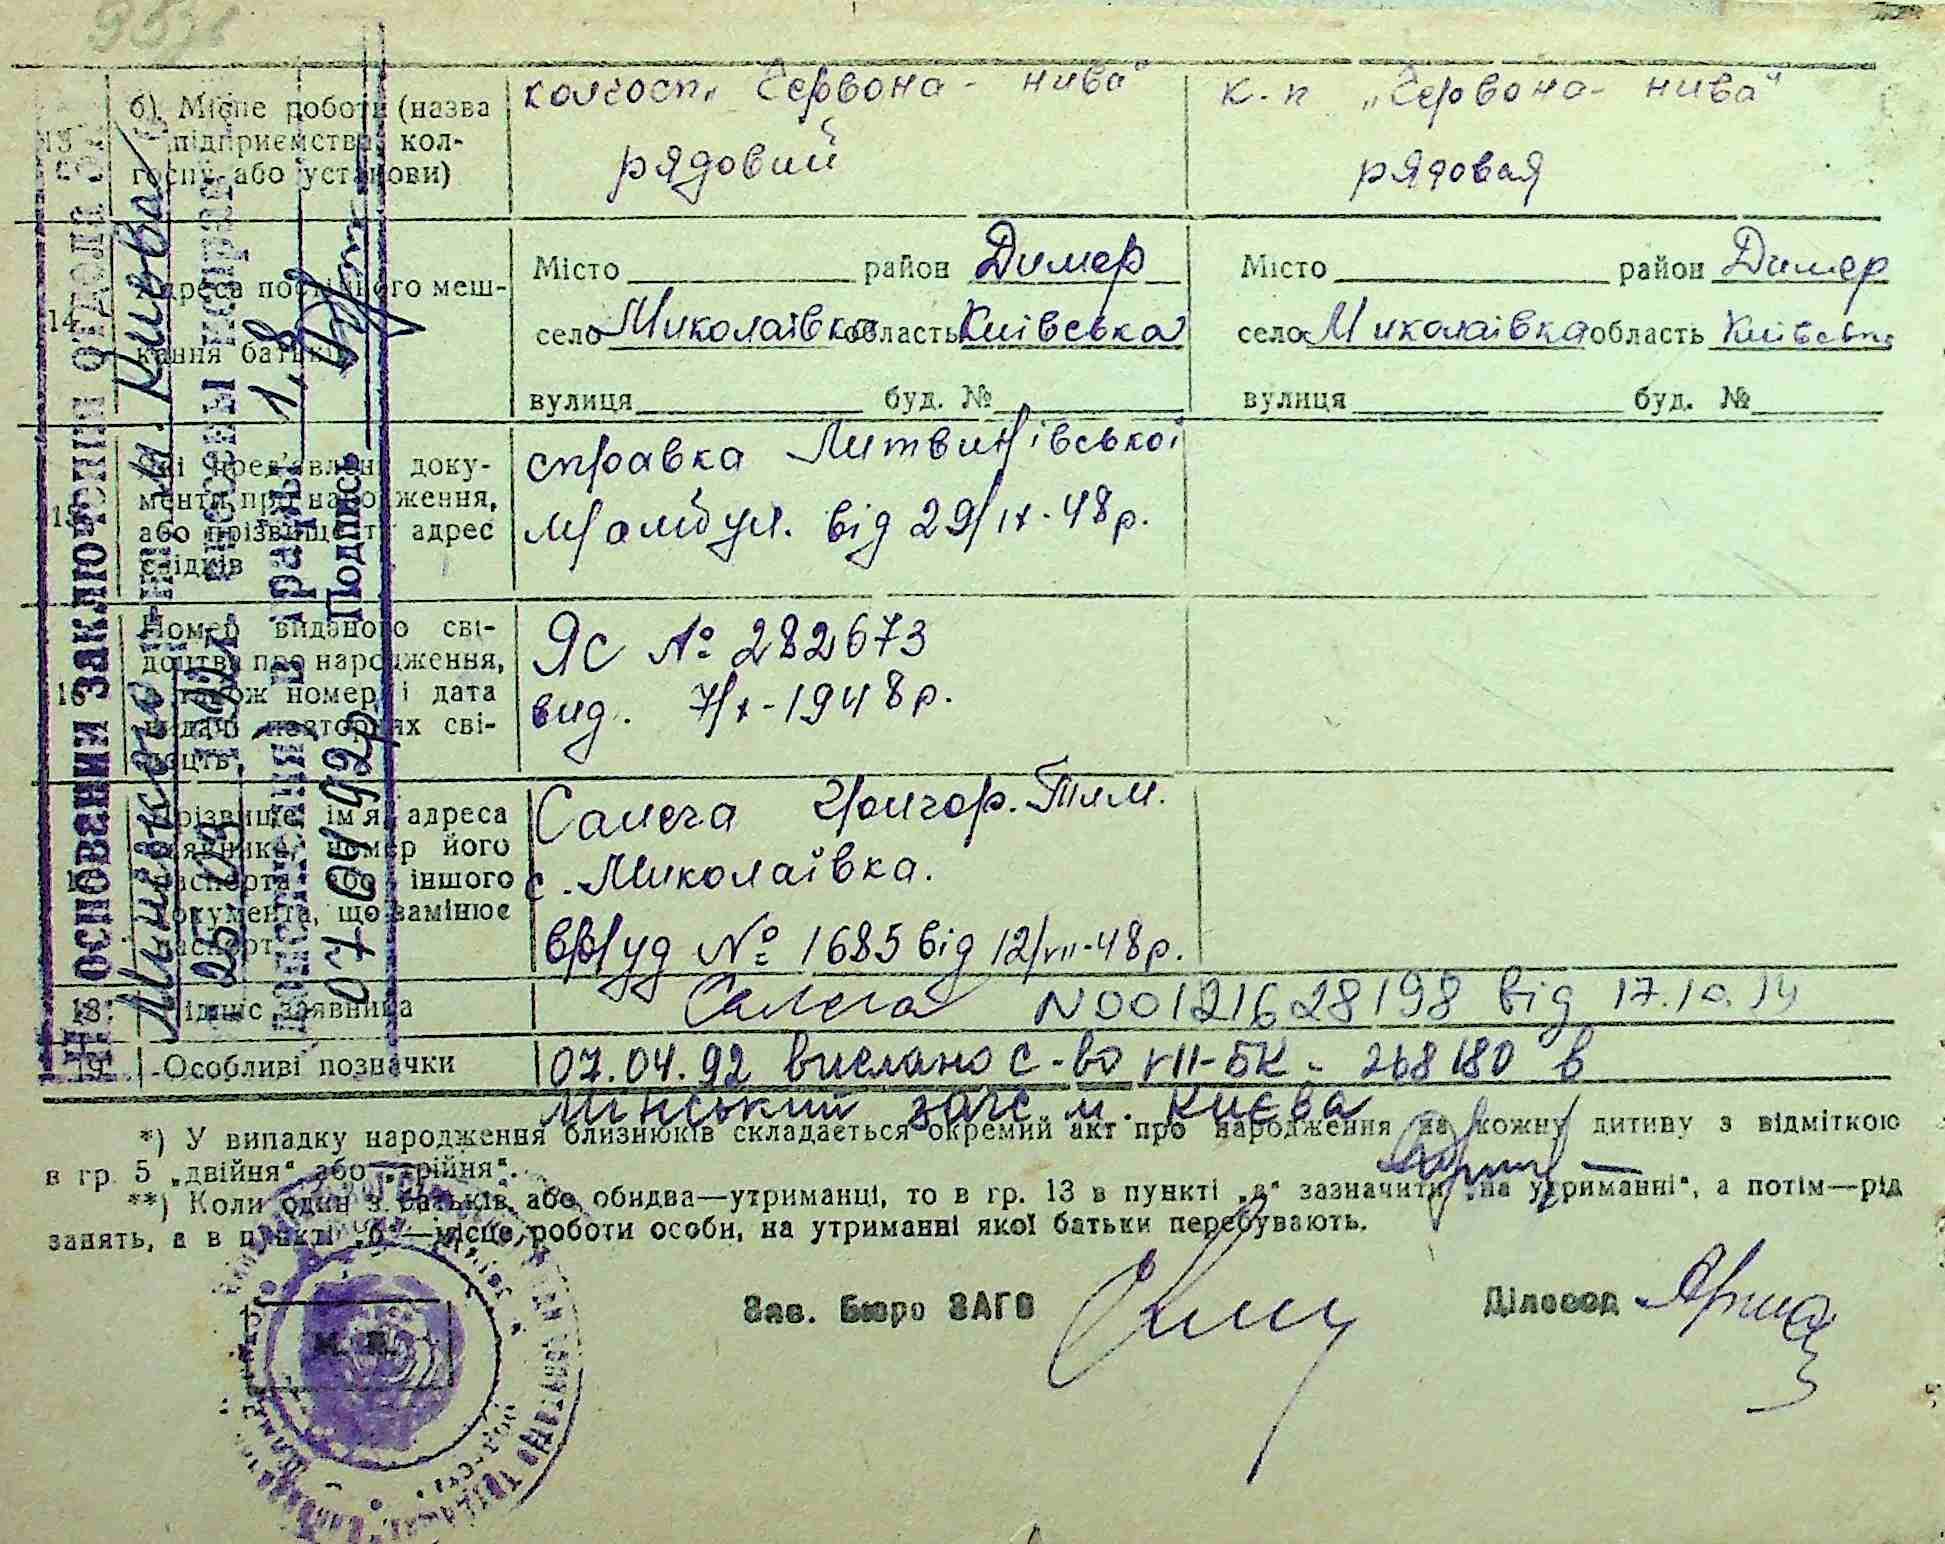 б) Місце роботи (назва підприємства, кол-
госпу або установи)
колгосп „Червона - нива"
рядовий
к-п „Червона - нива"
рядовая
14
Адреса постійного меш-
кання батьків
Місто район Димер
село Миколаївка область Київська
вулиця буд. №
Місто район Димер
село Миколаївка область Київськ
вулиця буд. №
15
Які пред'явлені доку-
менти про народження,
або прізвище та адрес
свідків
справка Литвинівської
від 29/ІХ-48р.
16
Номер виданого сві-
доцтва про народження,
а також номер і дата
видачі повторних сві-
доцтв
ЯС № 282673
вид. 7/х-1948р.
Прізвище, ім'я, адреса
заявника, номер його
паспорта або іншого
документа, що замінює
паспорт
Салега Григор. Тим.
с. Миколаївка.
№ 1685 від 12/VII-48р.
18. Підпис заявника
Салега N00121628198 від 17.10.14
19. Особливі позначки
07.04.92 вислано с-во VII-БК - 268180 в
Мінський загс м. Києва
*) У випадку народження близнюків складається окремий акт про народження на кожну дитину з відміткою
в гр. 5 „двійня" або „трійня".
**) Коли один з батьків або обидва—утриманці, то в гр. 13 в пункті „а" зазначити „на утриманні", а потім—рід
занять, а в пункті „б"—місце роботи особи, на утриманні якої батьки перебувають.
Зав. Бюро ЗАГС
Діловод
М. П.
На основении заключения отдела ЗАГС
Минского р-на м. Києва
1992
внесены исправления в графы 1, 8
07 04 92р Подпись